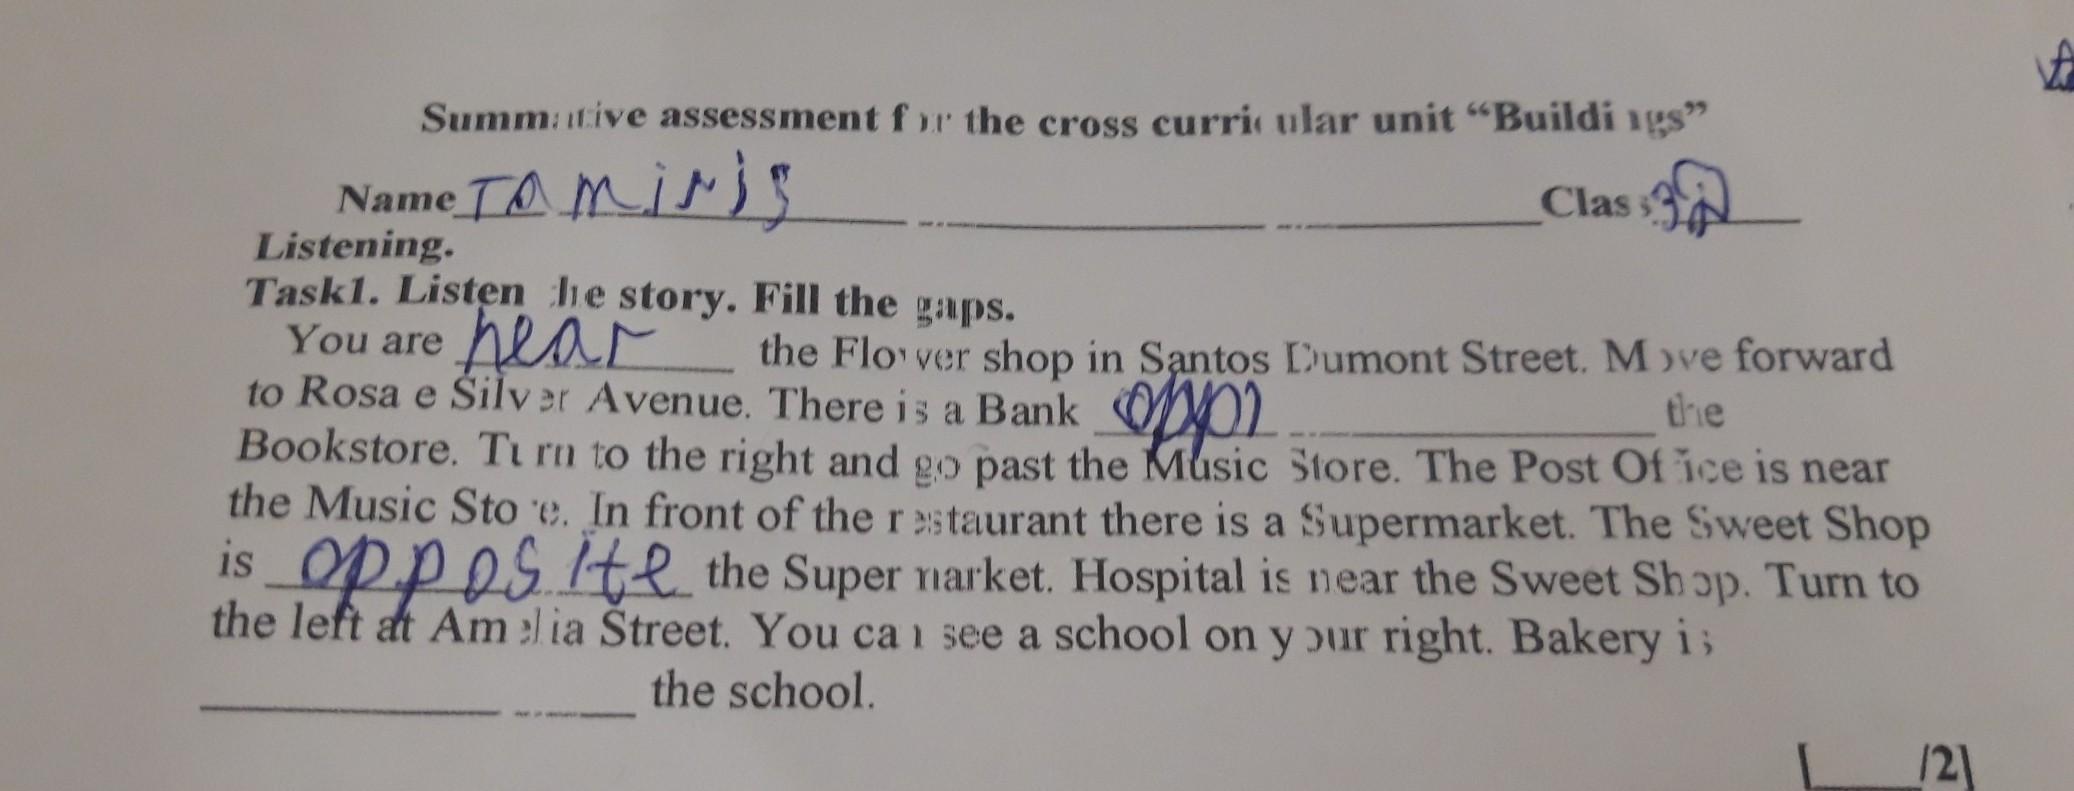 Summative assessment for the cross curricular unit “Buildings”
Name Tamiris Class 3
Listening.
Task1. Listen the story. Fill the gaps.
You are near the Flower shop in Santos Dumont Street. Move forward
to Rosa e Silver Avenue. There is a Bank oppo the
Bookstore. Turn to the right and go past the Music Store. The Post Office is near
the Music Store. In front of the restaurant there is a Supermarket. The Sweet Shop
is opposite the Supermarket. Hospital is near the Sweet Shop. Turn to
the left at Amelia Street. You can see a school on your right. Bakery is
the school.
[ /2]